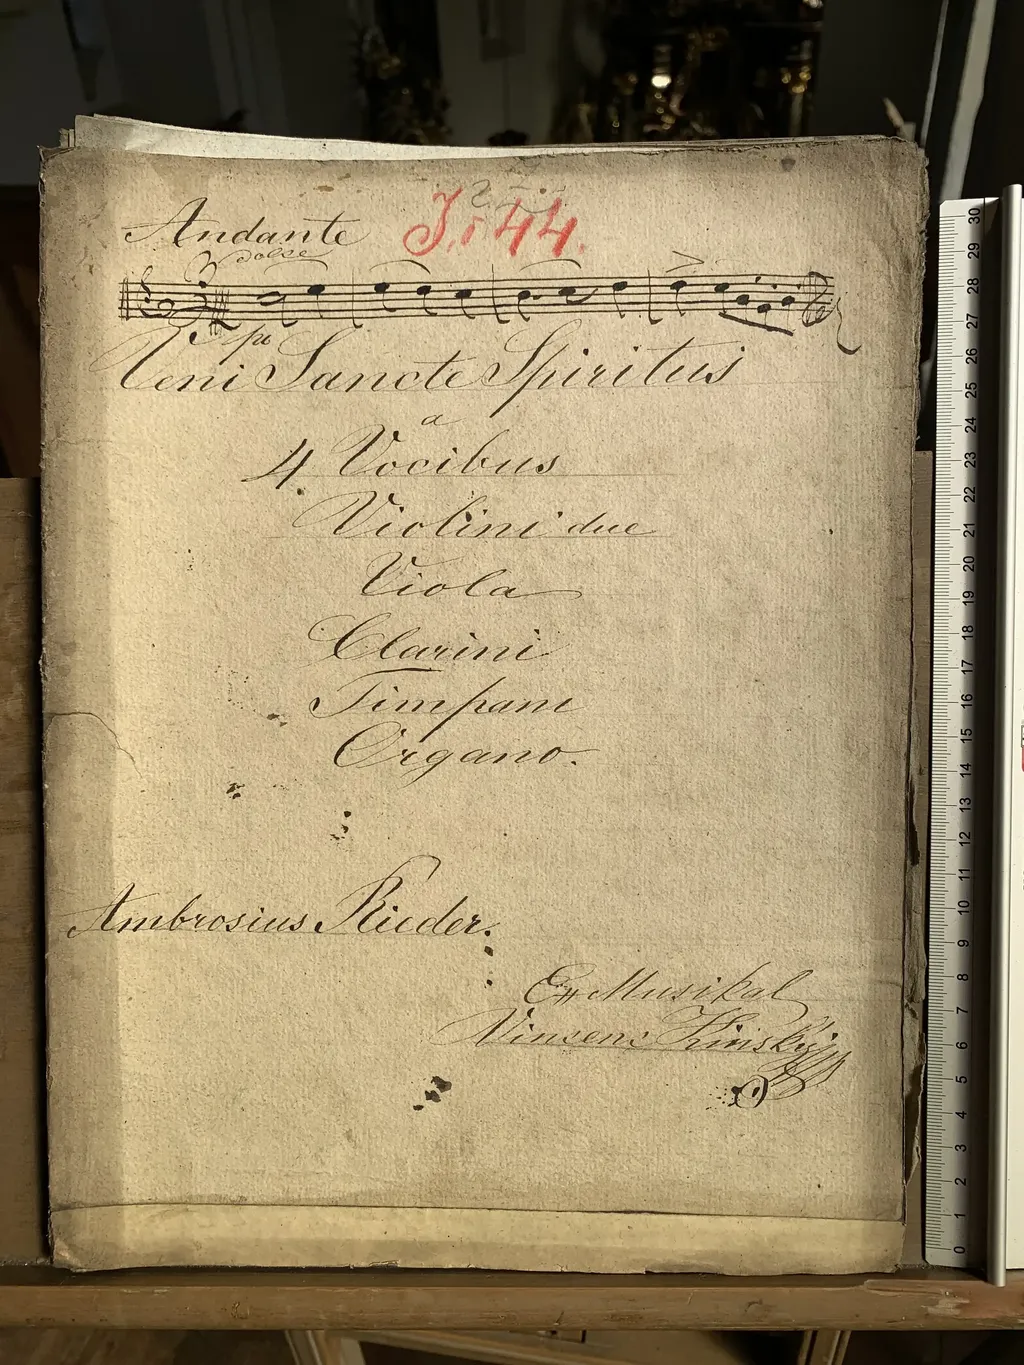 J. 44.
Andante
dolce
Veni Sancte Spiritus
a
4. Vocibus
Violini due
Viola
Clarini
Timpani
Organo.
Ambrosius Rieder.
Ex Musikal
30
29
28
27
26
25
24
23
22
21
20
19
18
17
16
15
14
13
12
11
10
9
8
7
6
5
4
3
2
1
0